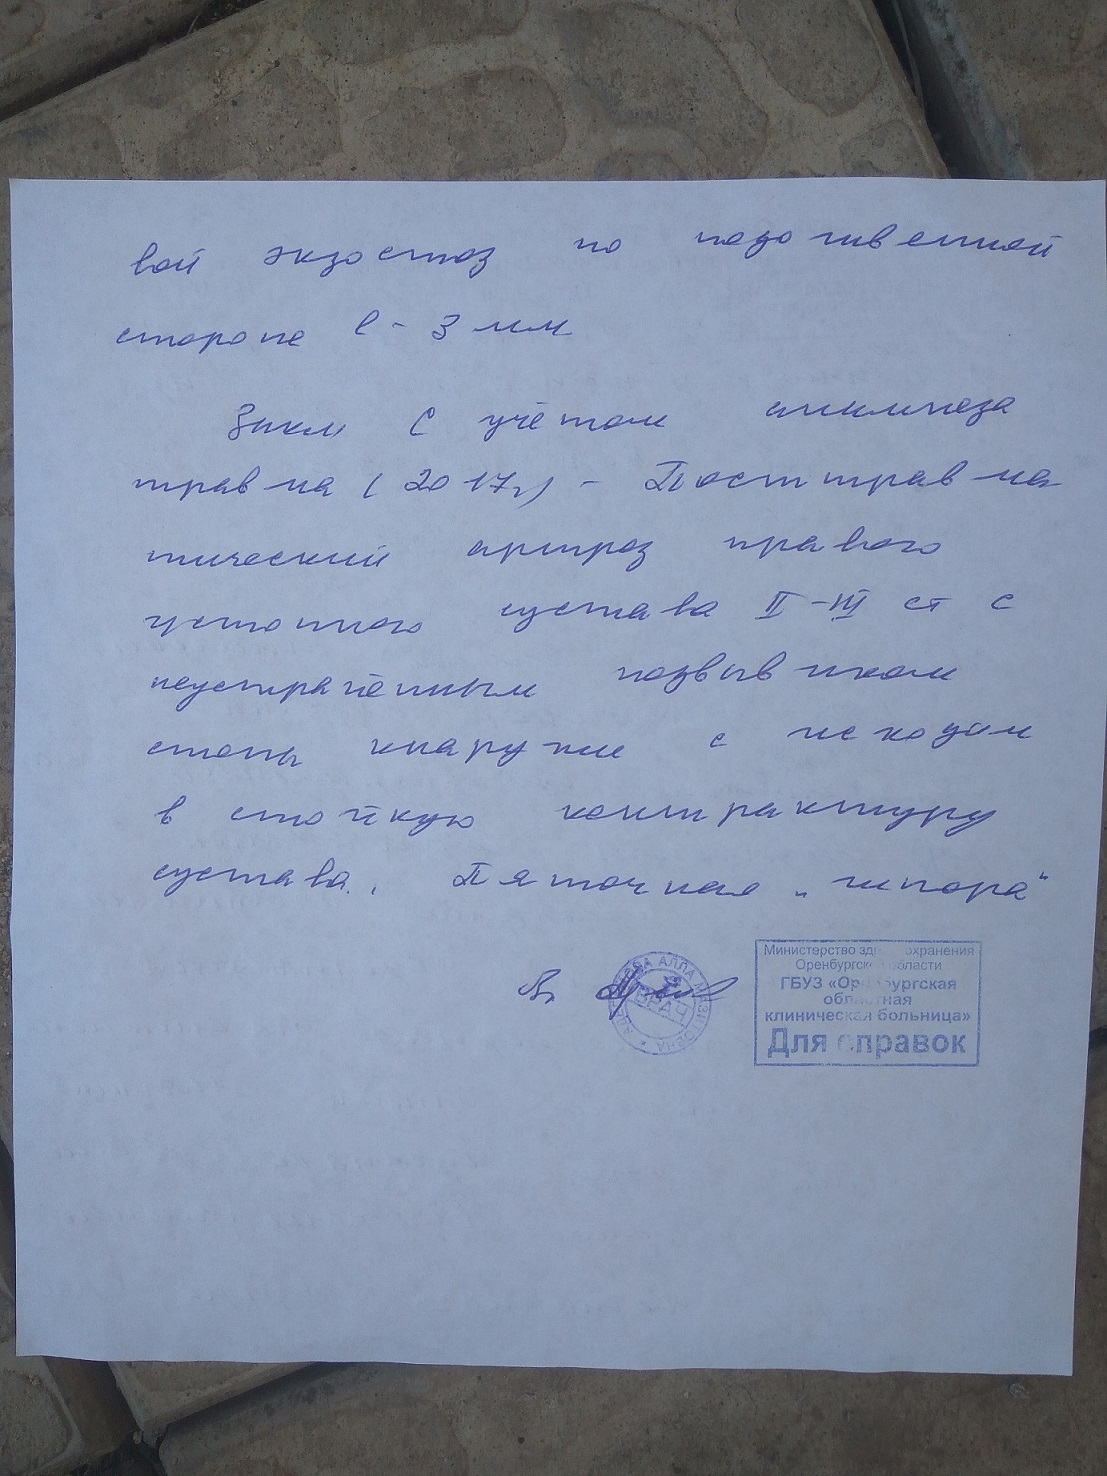 вой экзостоз по подошвенной
стороне l - 3 мм
Закл С учётом анамнеза
травма (2017г) - Посттравма
тический артроз правого
г/стопного сустава II-III ст с
неустранённым подвывихом
стопы кнаружи с исходом
в стойкую контрактуру
сустава. Пяточная „шпора"
Вр
ВРАЧ
АЛЛА
Министерство здравоохранения
Оренбургской области
ГБУЗ «Оренбургская
областная
клиническая больница»
Для справок